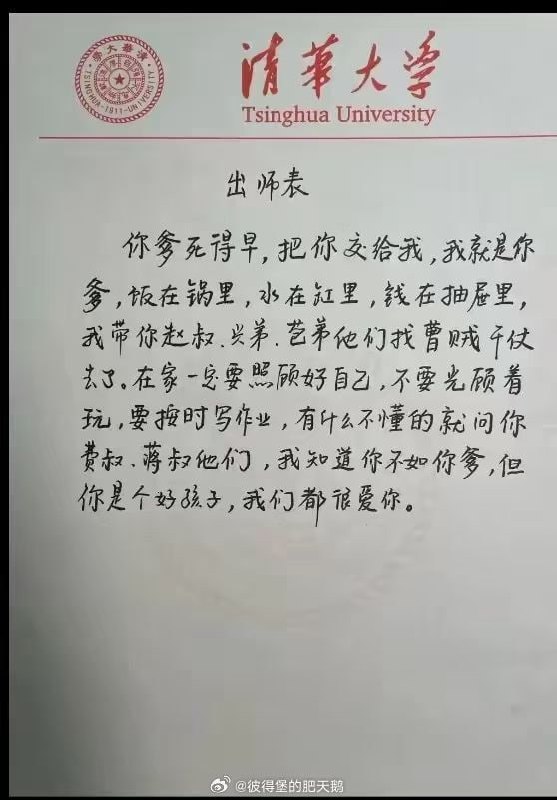 清華大學
TSINGHUA-1911-UNIVERSITY
清華大学
Tsinghua University
出师表
你爹死得早,把你交给我,我就是你
爹,饭在锅里,水在缸里,钱在抽屉里,
我带你赵叔、兴弟、苞弟他们找曹贼干仗
去了。在家一定要照顾好自己,不要光顾着
玩,要按时写作业,有什么不懂的就问你
费叔、蒋叔他们,我知道你不如你爹,但
你是个好孩子,我们都很爱你。
@彼得堡的肥天鹅